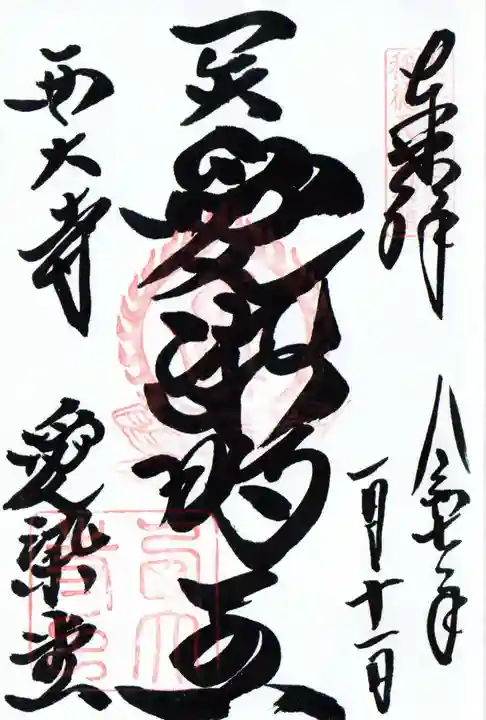 奉拝
令和七年
一月十一日
愛染明王
西大寺
愛染堂